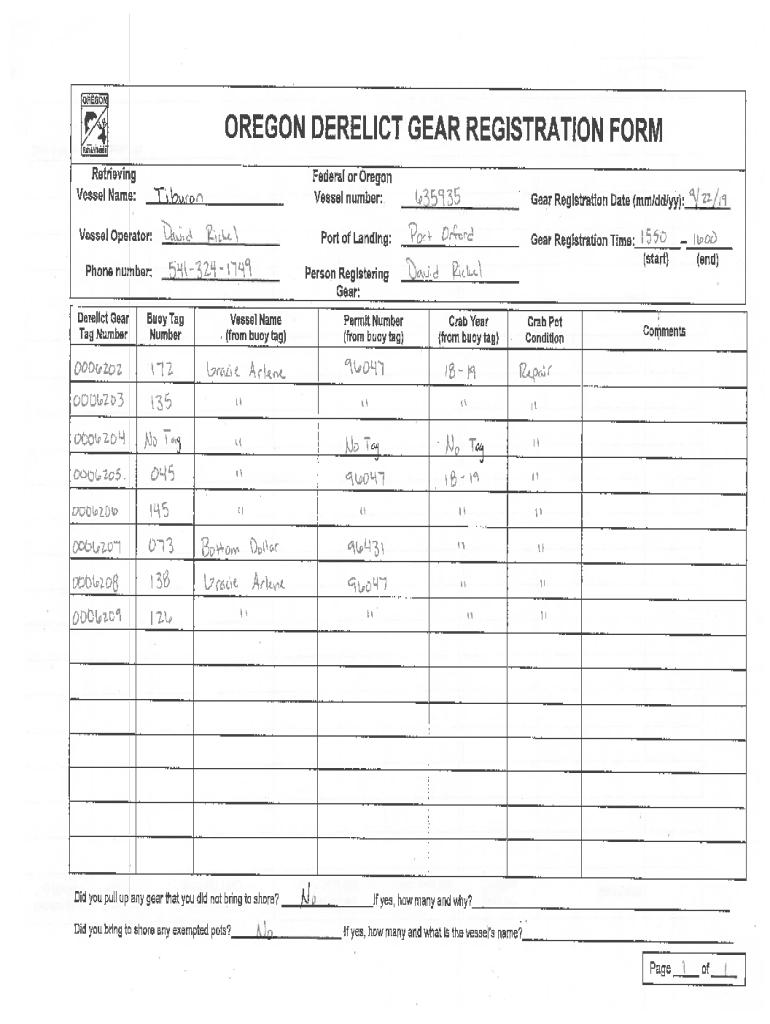 OREGON
OREGON DERELICT GEAR REGISTRATION FORM
Retrieving Vessel Name: Tiburon
Federal or Oregon Vessel number: 635935
Gear Registration Date (mm/dd/yy): 9/22/19
Vessel Operator: David Rickel
Port of Landing: Port Orford
Gear Registration Time: 1550 - 1600
(start) (end)
Phone number: 541-324-1749
Person Registering Gear: David Rickel
Derelict Gear Tag Number Buoy Tag Number Vessel Name (from buoy tag) Permit Number (from buoy tag) Crab Year (from buoy tag) Crab Pot Condition Comments
0006202 172 Gracie Arlene 96047 18-19 Repair
0006203 135 " " " "
0006204 No Tag " No Tag No Tag "
0006205 045 " 96047 18-19 "
0006206 145 " " " "
0006207 073 Bottom Dollar 96431 " "
0006208 138 Gracie Arlene 96047 " "
0006209 126 " " " "
Did you pull up any gear that you did not bring to shore? No If yes, how many and why?
Did you bring to shore any exempted pots? No If yes, how many and what is the vessel's name?
Page 1 of 1